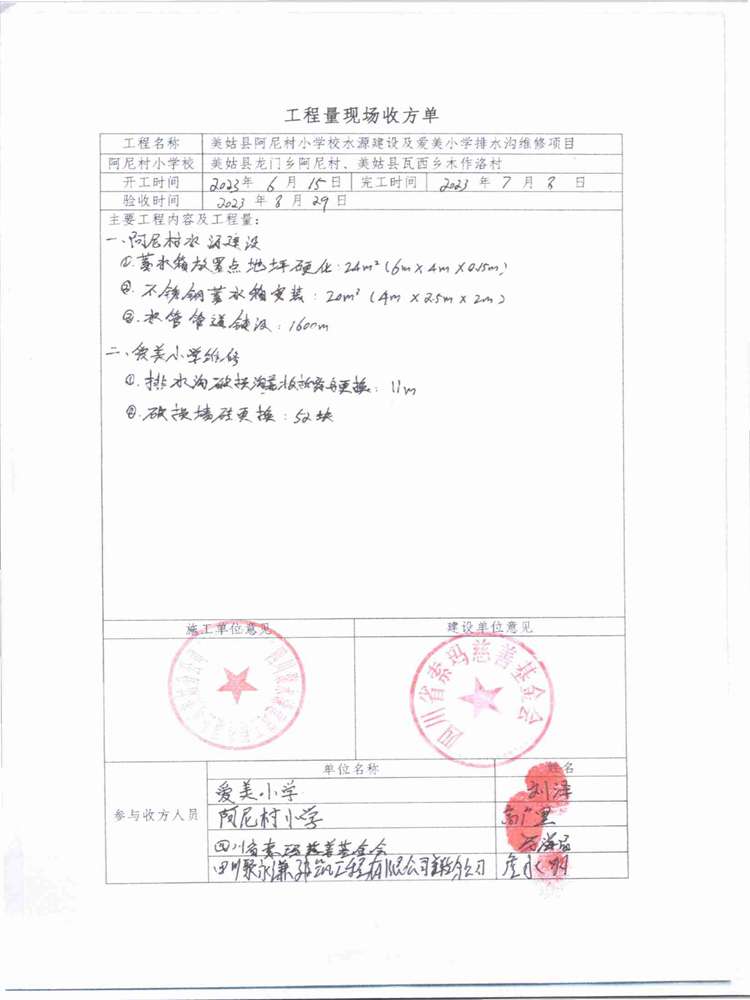 工程量现场收方单
工程名称 美姑县阿尼村小学校水源建设及爱美小学排水沟维修项目
阿尼村小学校 美姑县龙门乡阿尼村、美姑县瓦西乡木作洛村
开工时间 2023年 6 月 15 日 完工时间 2023 年 7 月 8 日
验收时间 2023 年 8 月 29 日
主要工程内容及工程量：
一、阿尼村水源建设
①.蓄水箱放置点地坪硬化：24m²（6m×4m×0.15m）
②.不锈钢蓄水箱安装：20m³（4m×2.5m×2m）
③.水管管道铺设：1600m
二、爱美小学维修
①.排水沟破损沟盖板拆除与更换：11m
②.破损墙砖更换：52块
施工单位意见 建设单位意见
四川省索玛慈善基金会
单位名称 姓名
参与收方人员
爱美小学 刘泽
阿尼村小学
四川省索玛慈善基金会
四川聚永谦建筑工程有限公司